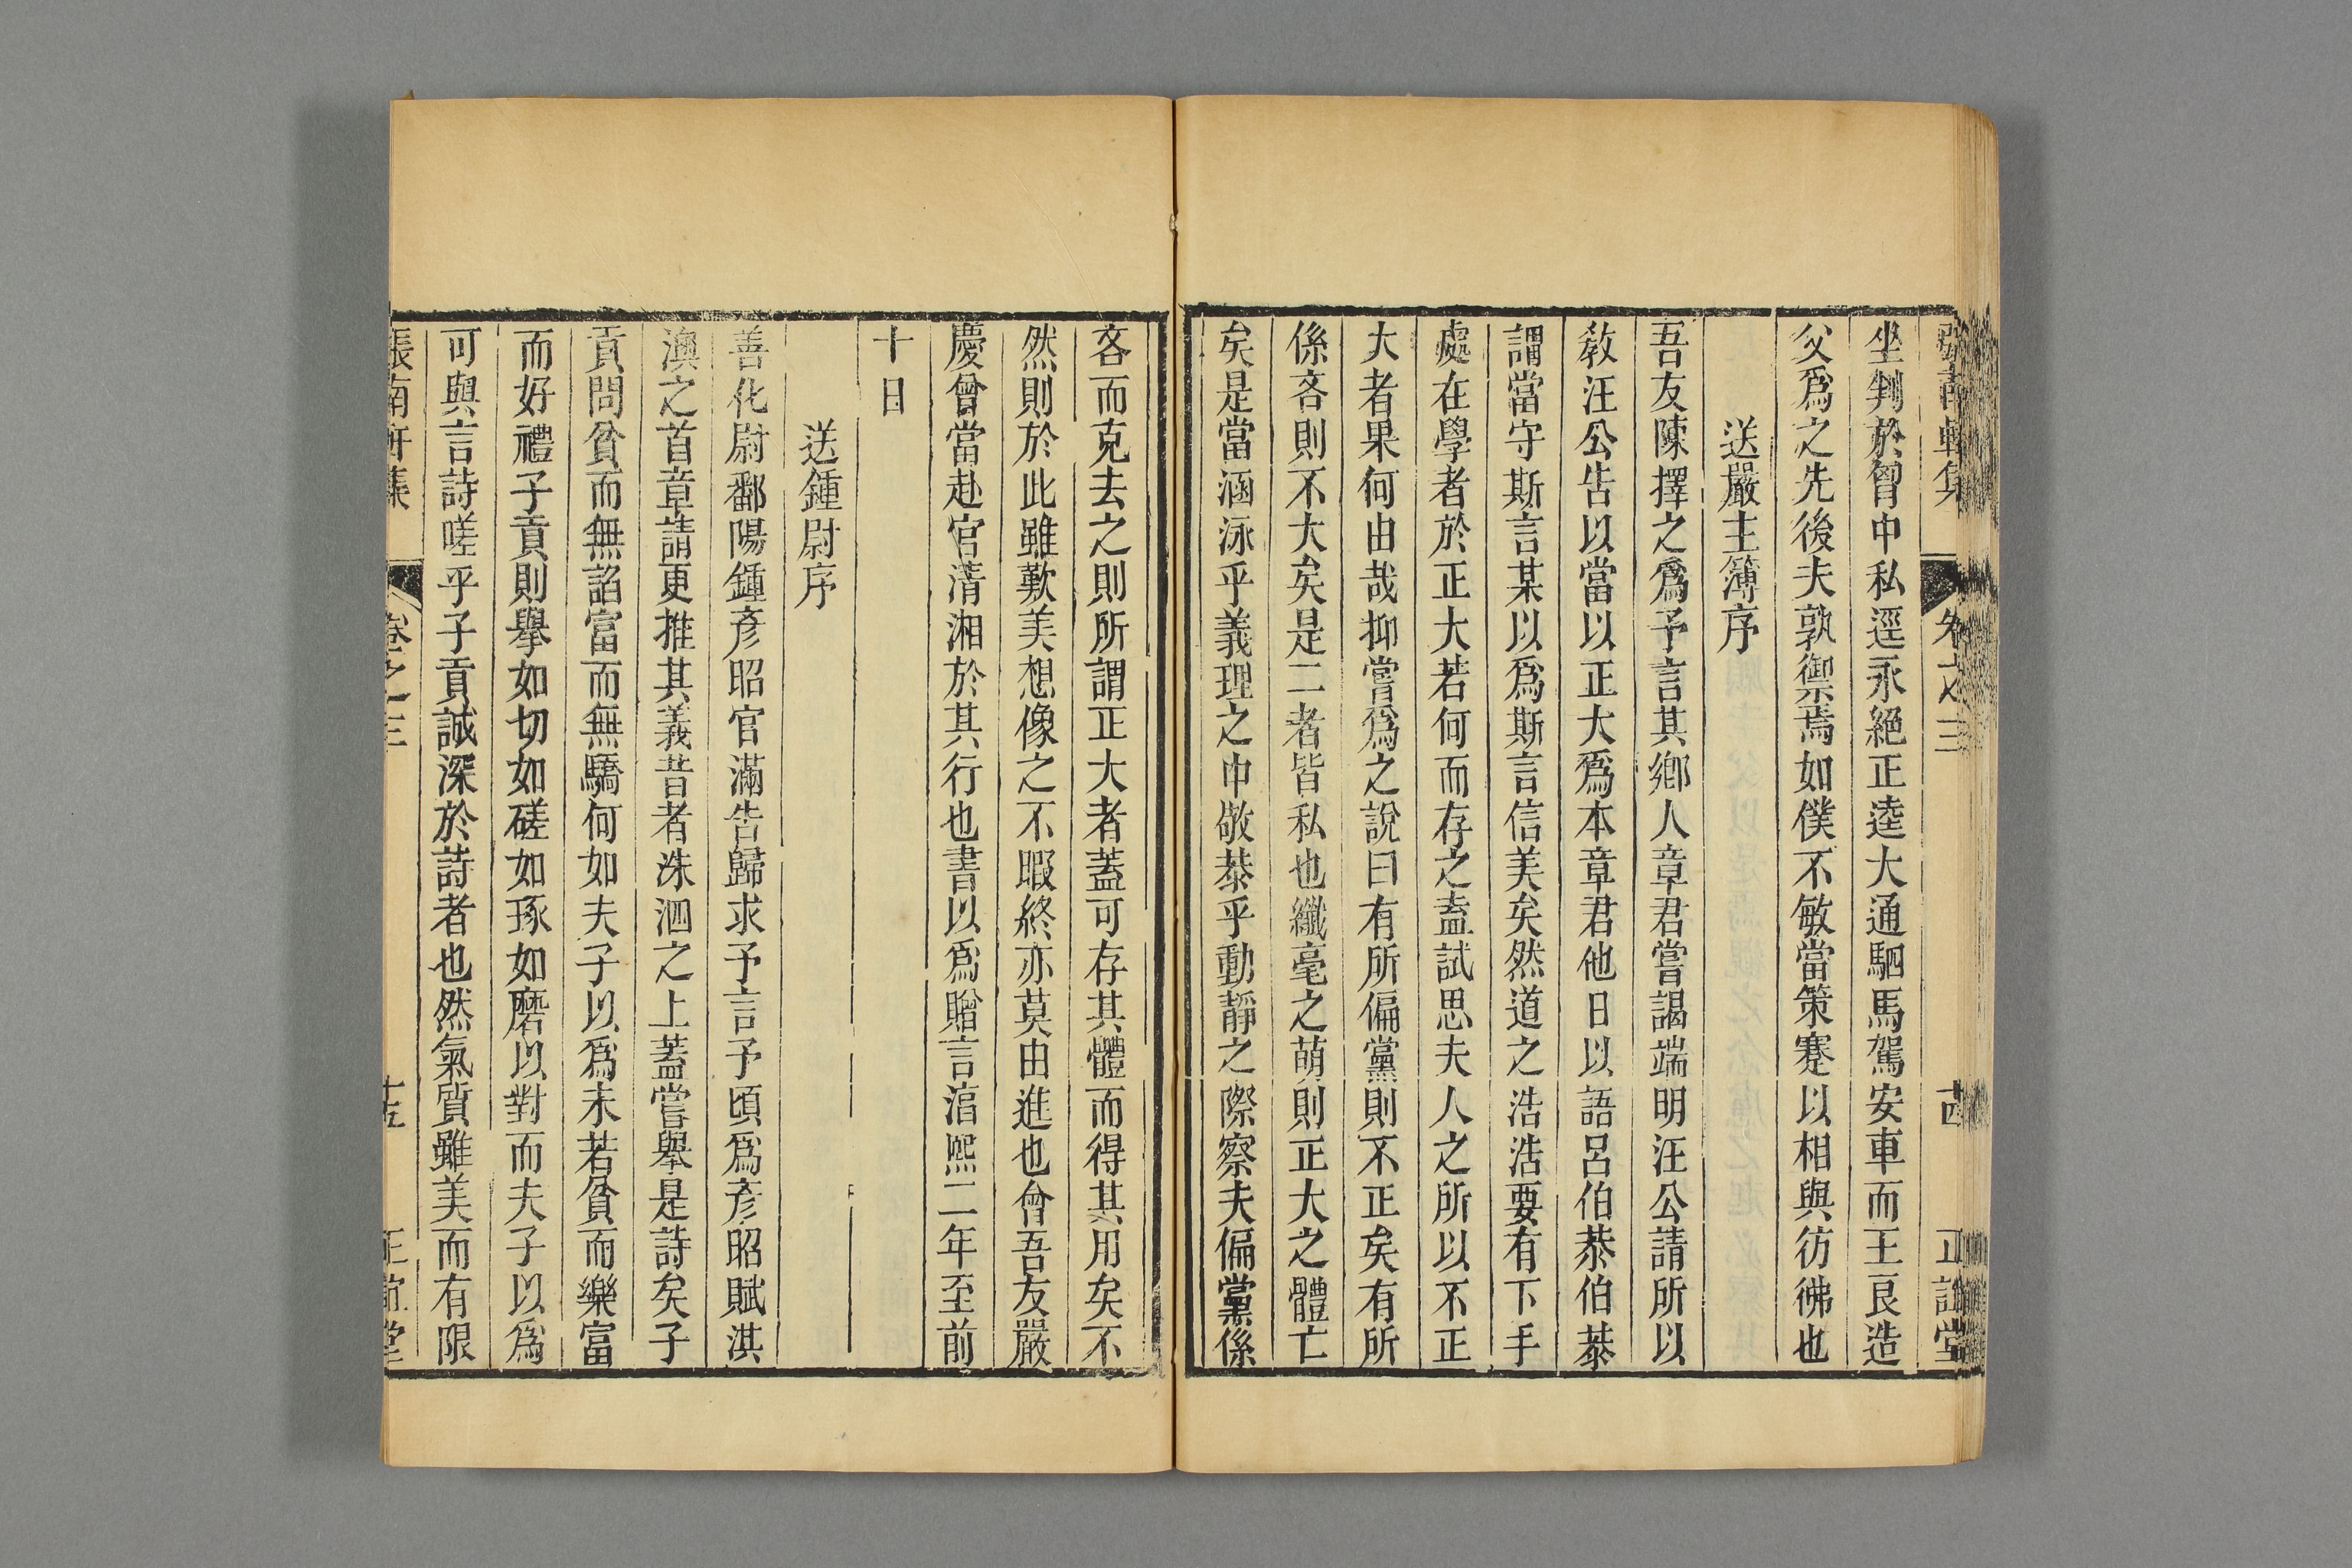 張南軒集 卷之三 十四 正誼堂
坐判於胷中私逕永絕正逵大通駟馬駕安車而王良造
父爲之先後夫孰禦焉如僕不敏當策蹇以相與彷彿也
送嚴主簿序
吾友陳擇之爲予言其鄉人章君嘗謁端明汪公請所以
教汪公告以當以正大爲本章君他日以語呂伯恭伯恭
謂當守斯言某以爲斯言信美矣然道之浩浩要有下手
處在學者於正大若何而存之盍試思夫人之所以不正
大者果何由哉抑嘗爲之說曰有所偏黨則不正矣有所
係吝則不大矣是二者皆私也纖毫之萌則正大之體亡
矣是當涵泳乎義理之中敬恭乎動靜之際察夫偏黨係
吝而克去之則所謂正大者蓋可存其體而得其用矣不
然則於此雖歎美想像之不暇終亦莫由進也會吾友嚴
慶曾當赴官清湘於其行也書以爲贈言淳熙二年至前
十日
送鍾尉序
善化尉鄱陽鍾彥昭官滿告歸求予言予頃爲彥昭賦淇
澳之首章請更推其義昔者洙泗之上蓋嘗舉是詩矣子
貢問貧而無諂富而無驕何如夫子以爲未若貧而樂富
而好禮子貢則舉如切如磋如琢如磨以對而夫子以爲
可與言詩嗟乎子貢誠深於詩者也然氣質雖美而有限
張南軒集 卷之三 十五 正誼堂